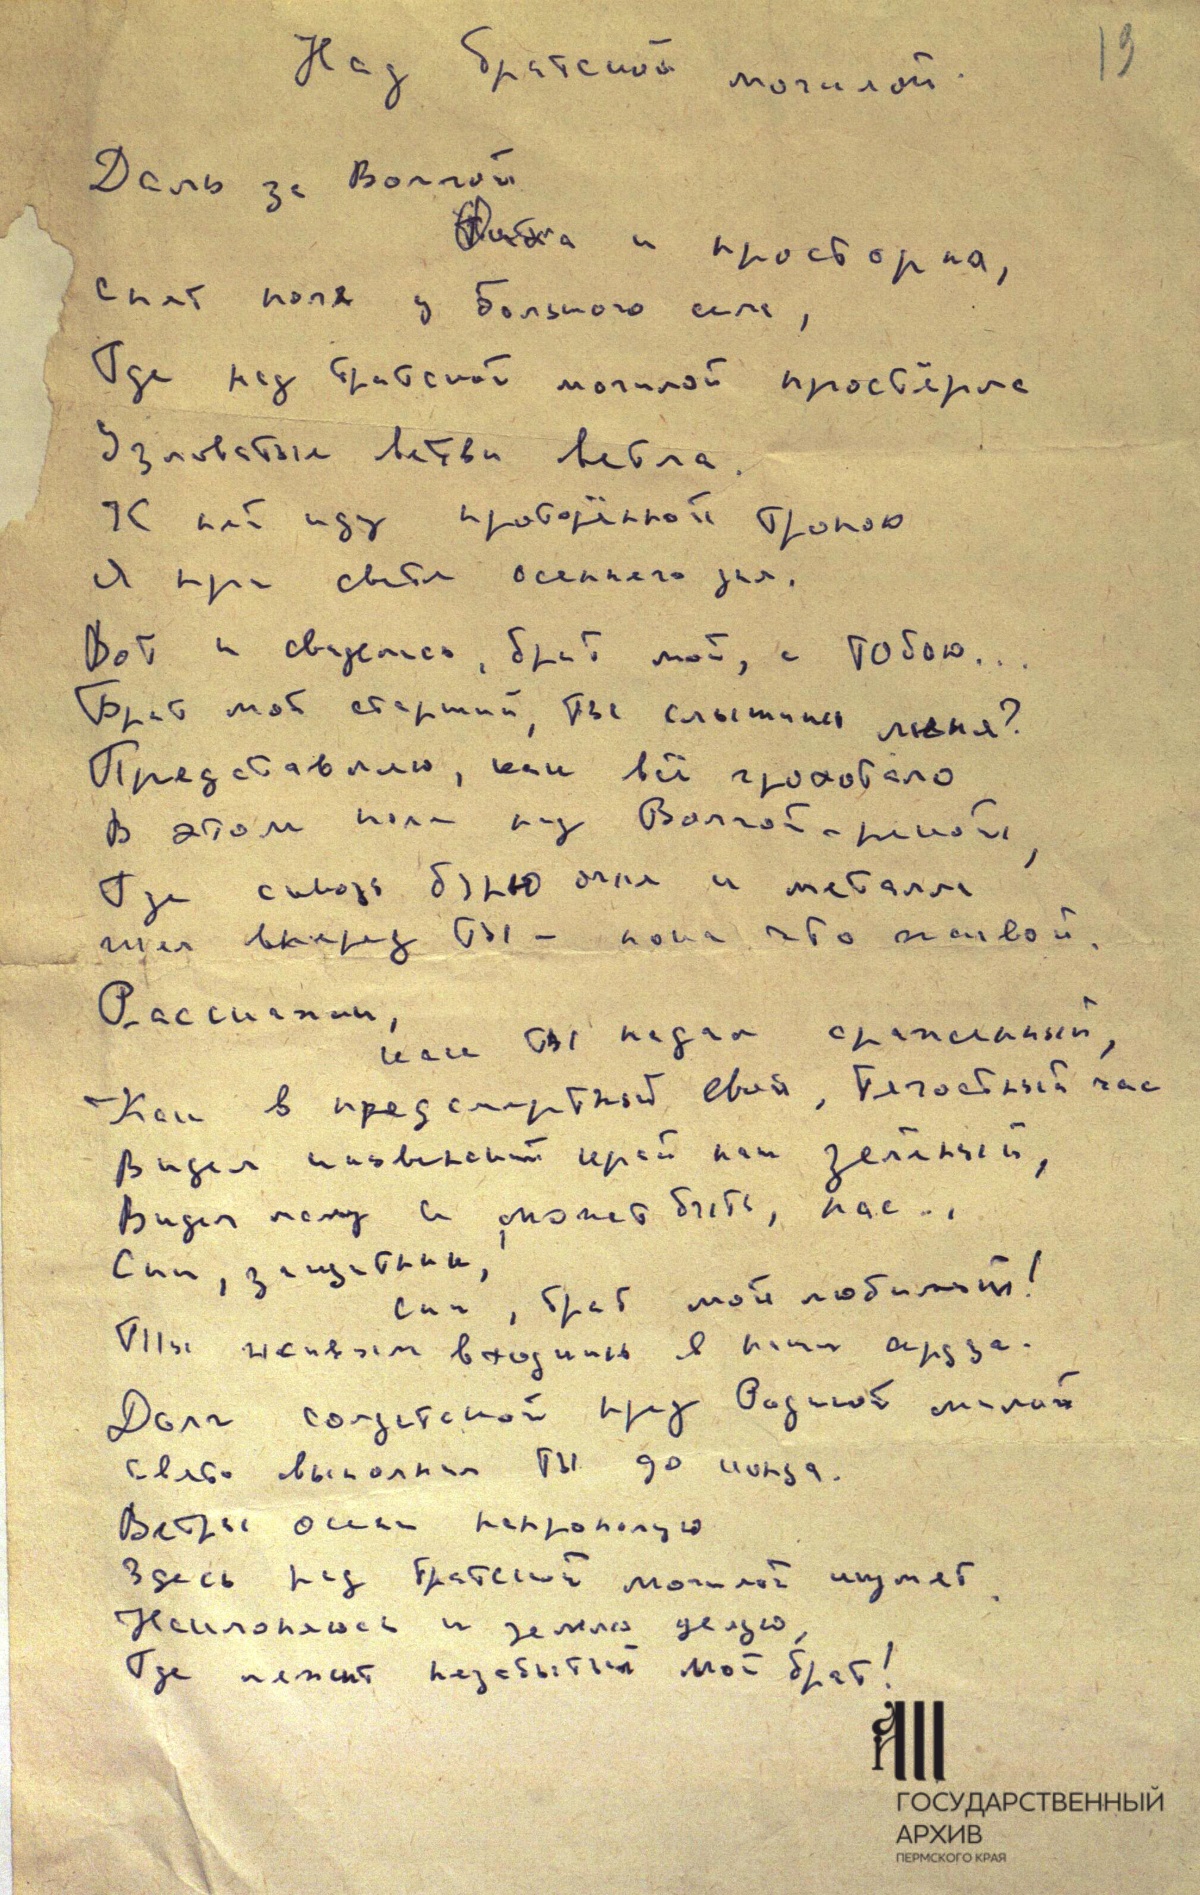 Над братской могилой.
19
Даль за Волгой
и просторна,
Спят поля у большого села,
Где над братской могилой простёрла
Узловатые ветви ветла.
К ней иду проторённой тропою
Я при свете осеннего дня.
Вот и свиделись, брат мой, с тобою...
Брат мой старший, ты слышишь меня?
Представляю, как всё грохотало
В этом поле над Волгой-рекой,
Где сквозь бурю огня и металла
шел вперед ты – пока что живой.
Расскажи,
как ты падал сраженный,
Как в предсмертный свой, тягостный час
Видел киževский край наш зелёный,
Видел маму и, может быть, нас...
Спи, защитник,
спи, брат мой любимый!
Ты живым входишь в наши сердца.
Долг солдатский пред Родиной милой
свято выполнил ты до конца.
Ветры осени
Здесь над братской могилой шумят.
Наклоняюсь и землю целую,
Где лежит незабытый мой брат!
ГОСУДАРСТВЕННЫЙ
АРХИВ
ПЕРМСКОГО КРАЯ